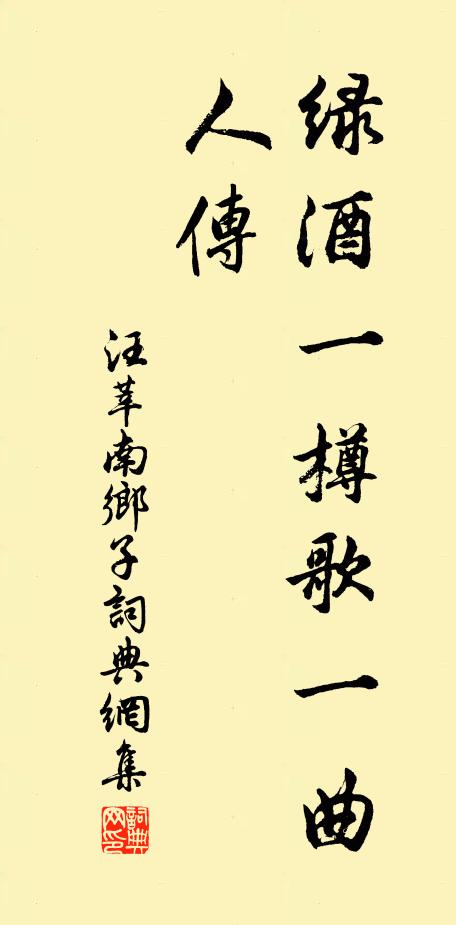 绿酒一樽歌一曲
人傳
汪莘南鄉子詞典網集
詞典网印